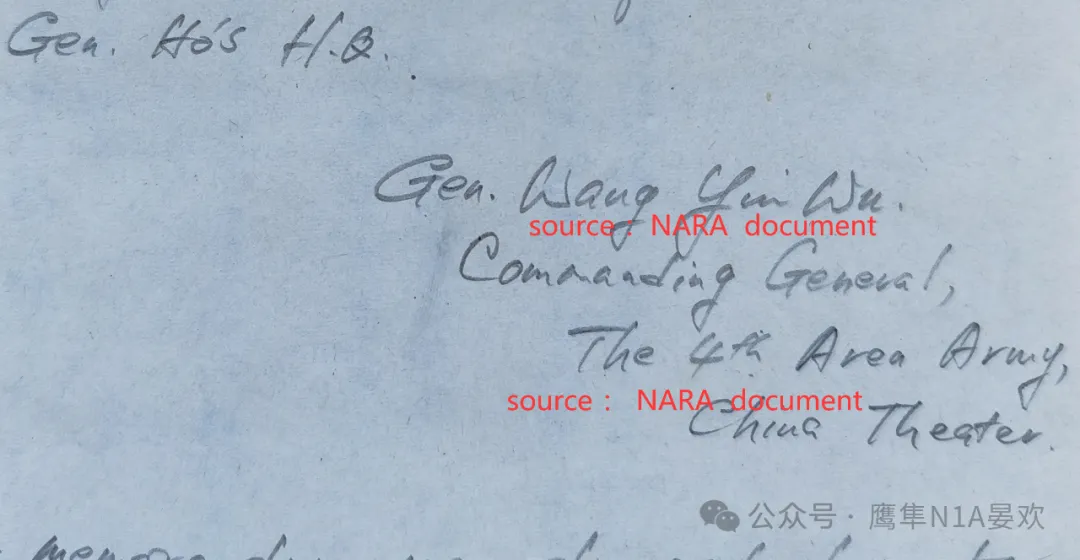 Gen. Ho's H.Q.
Gen. Wang Yin Wu.
source： NARA document
Commanding General,
The 4th Area Army,
source： NARA document
China Theater.
公众号 · 鹰隼N1A晏欢